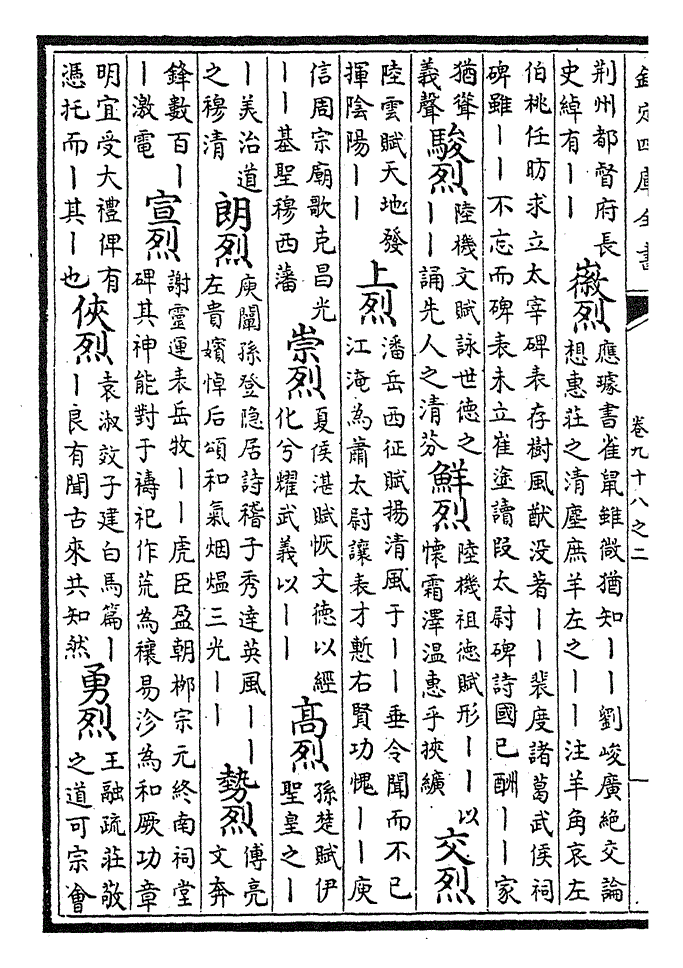 欽定四庫全書
卷九十八之二
荆州都督府長
史綽有——
徽烈
應璩書雀鼠雖微猶知——劉峻廣絶交論
想惠莊之清塵庶羊左之——注羊角哀左
伯桃任昉求立太宰碑表存樹風猷没著——裴度諸葛武侯祠
碑雖——不忘而碑表未立崔塗讀段太尉碑詩國已酬——家
猶聳
義聲
駿烈
陸機文賦詠世德之
——誦先人之清芬
鮮烈
陸機祖德賦形——以
懷霜澤温惠乎挾纊
交烈
陸雲賦天地發
揮陰陽——
上烈
潘岳西征賦揚清風于——垂令聞而不已
江淹為蕭太尉讓表才慙右賢功愧——庾
信周宗廟歌克昌光
——基聖穆西藩
崇烈
夏侯湛賦恢文德以經
化兮耀武義以——
高烈
孫楚賦伊
聖皇之—
—美治道
之穆清
朗烈
庾闡孫登隐居詩稽子秀達英風——
左貴嬪悼后頌和氣烟熅三光——
勢烈
傅亮
文奔
鋒數百—
—激電
宣烈
謝靈運表岳牧——虎臣盈朝栁宗元終南祠堂
碑其神能對于禱祀作荒為穰易沴為和厥功章
明宜受大禮俾有
憑托而—其—也
俠烈
袁淑效子建白馬篇—
—良有聞古來共知然
勇烈
王融疏莊敬
之道可宗㑹